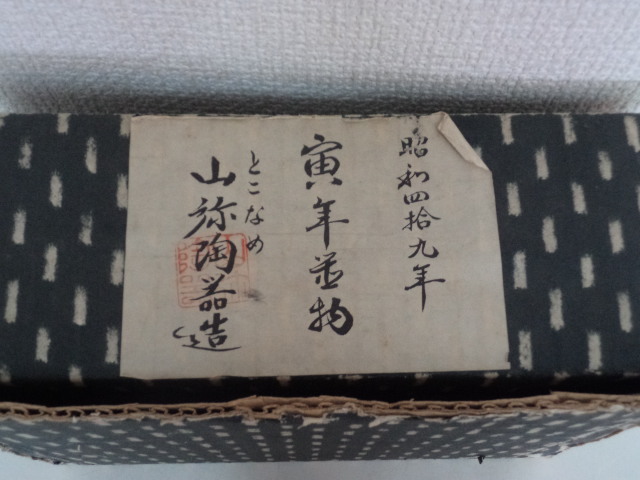 昭和四拾九年
寅年置物
とこなめ
山弥陶器造